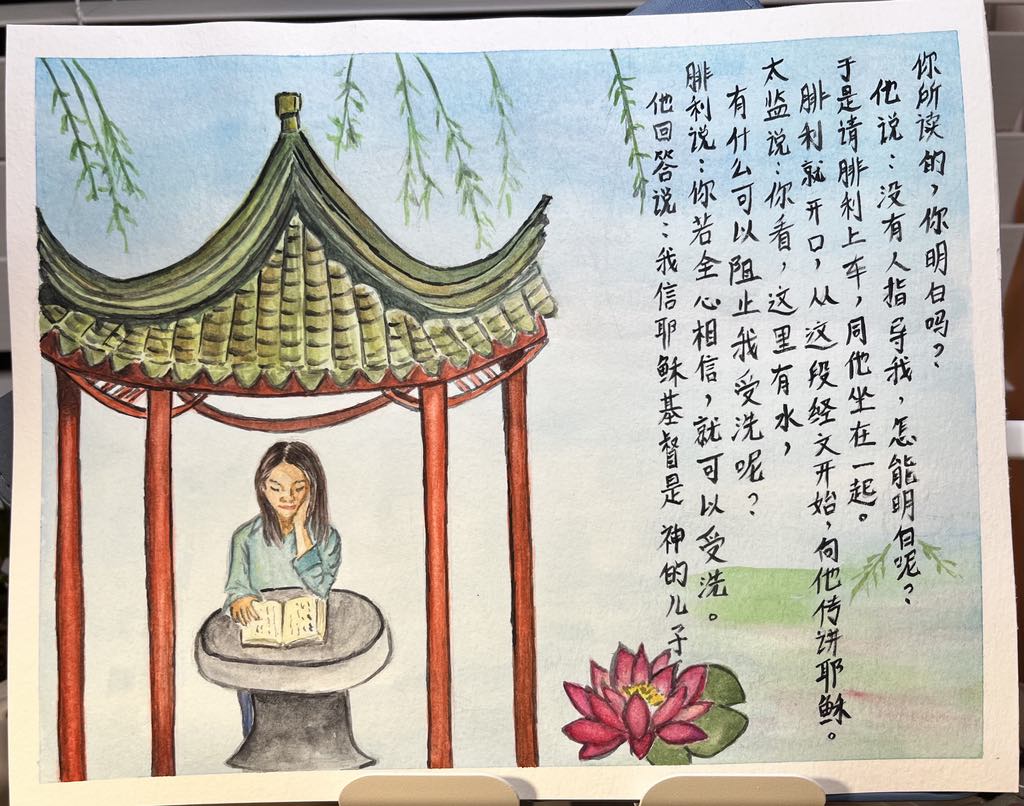 你所读的，你明白吗？
他说：没有人指导我，怎能明白呢？
于是请腓利上车，同他坐在一起。
腓利就开口，从这段经文开始，向他传讲耶稣。
太监说：你看，这里有水，
有什么可以阻止我受洗呢？
腓利说：你若全心相信，就可以受洗。
他回答说：我信耶稣基督是 神的儿子